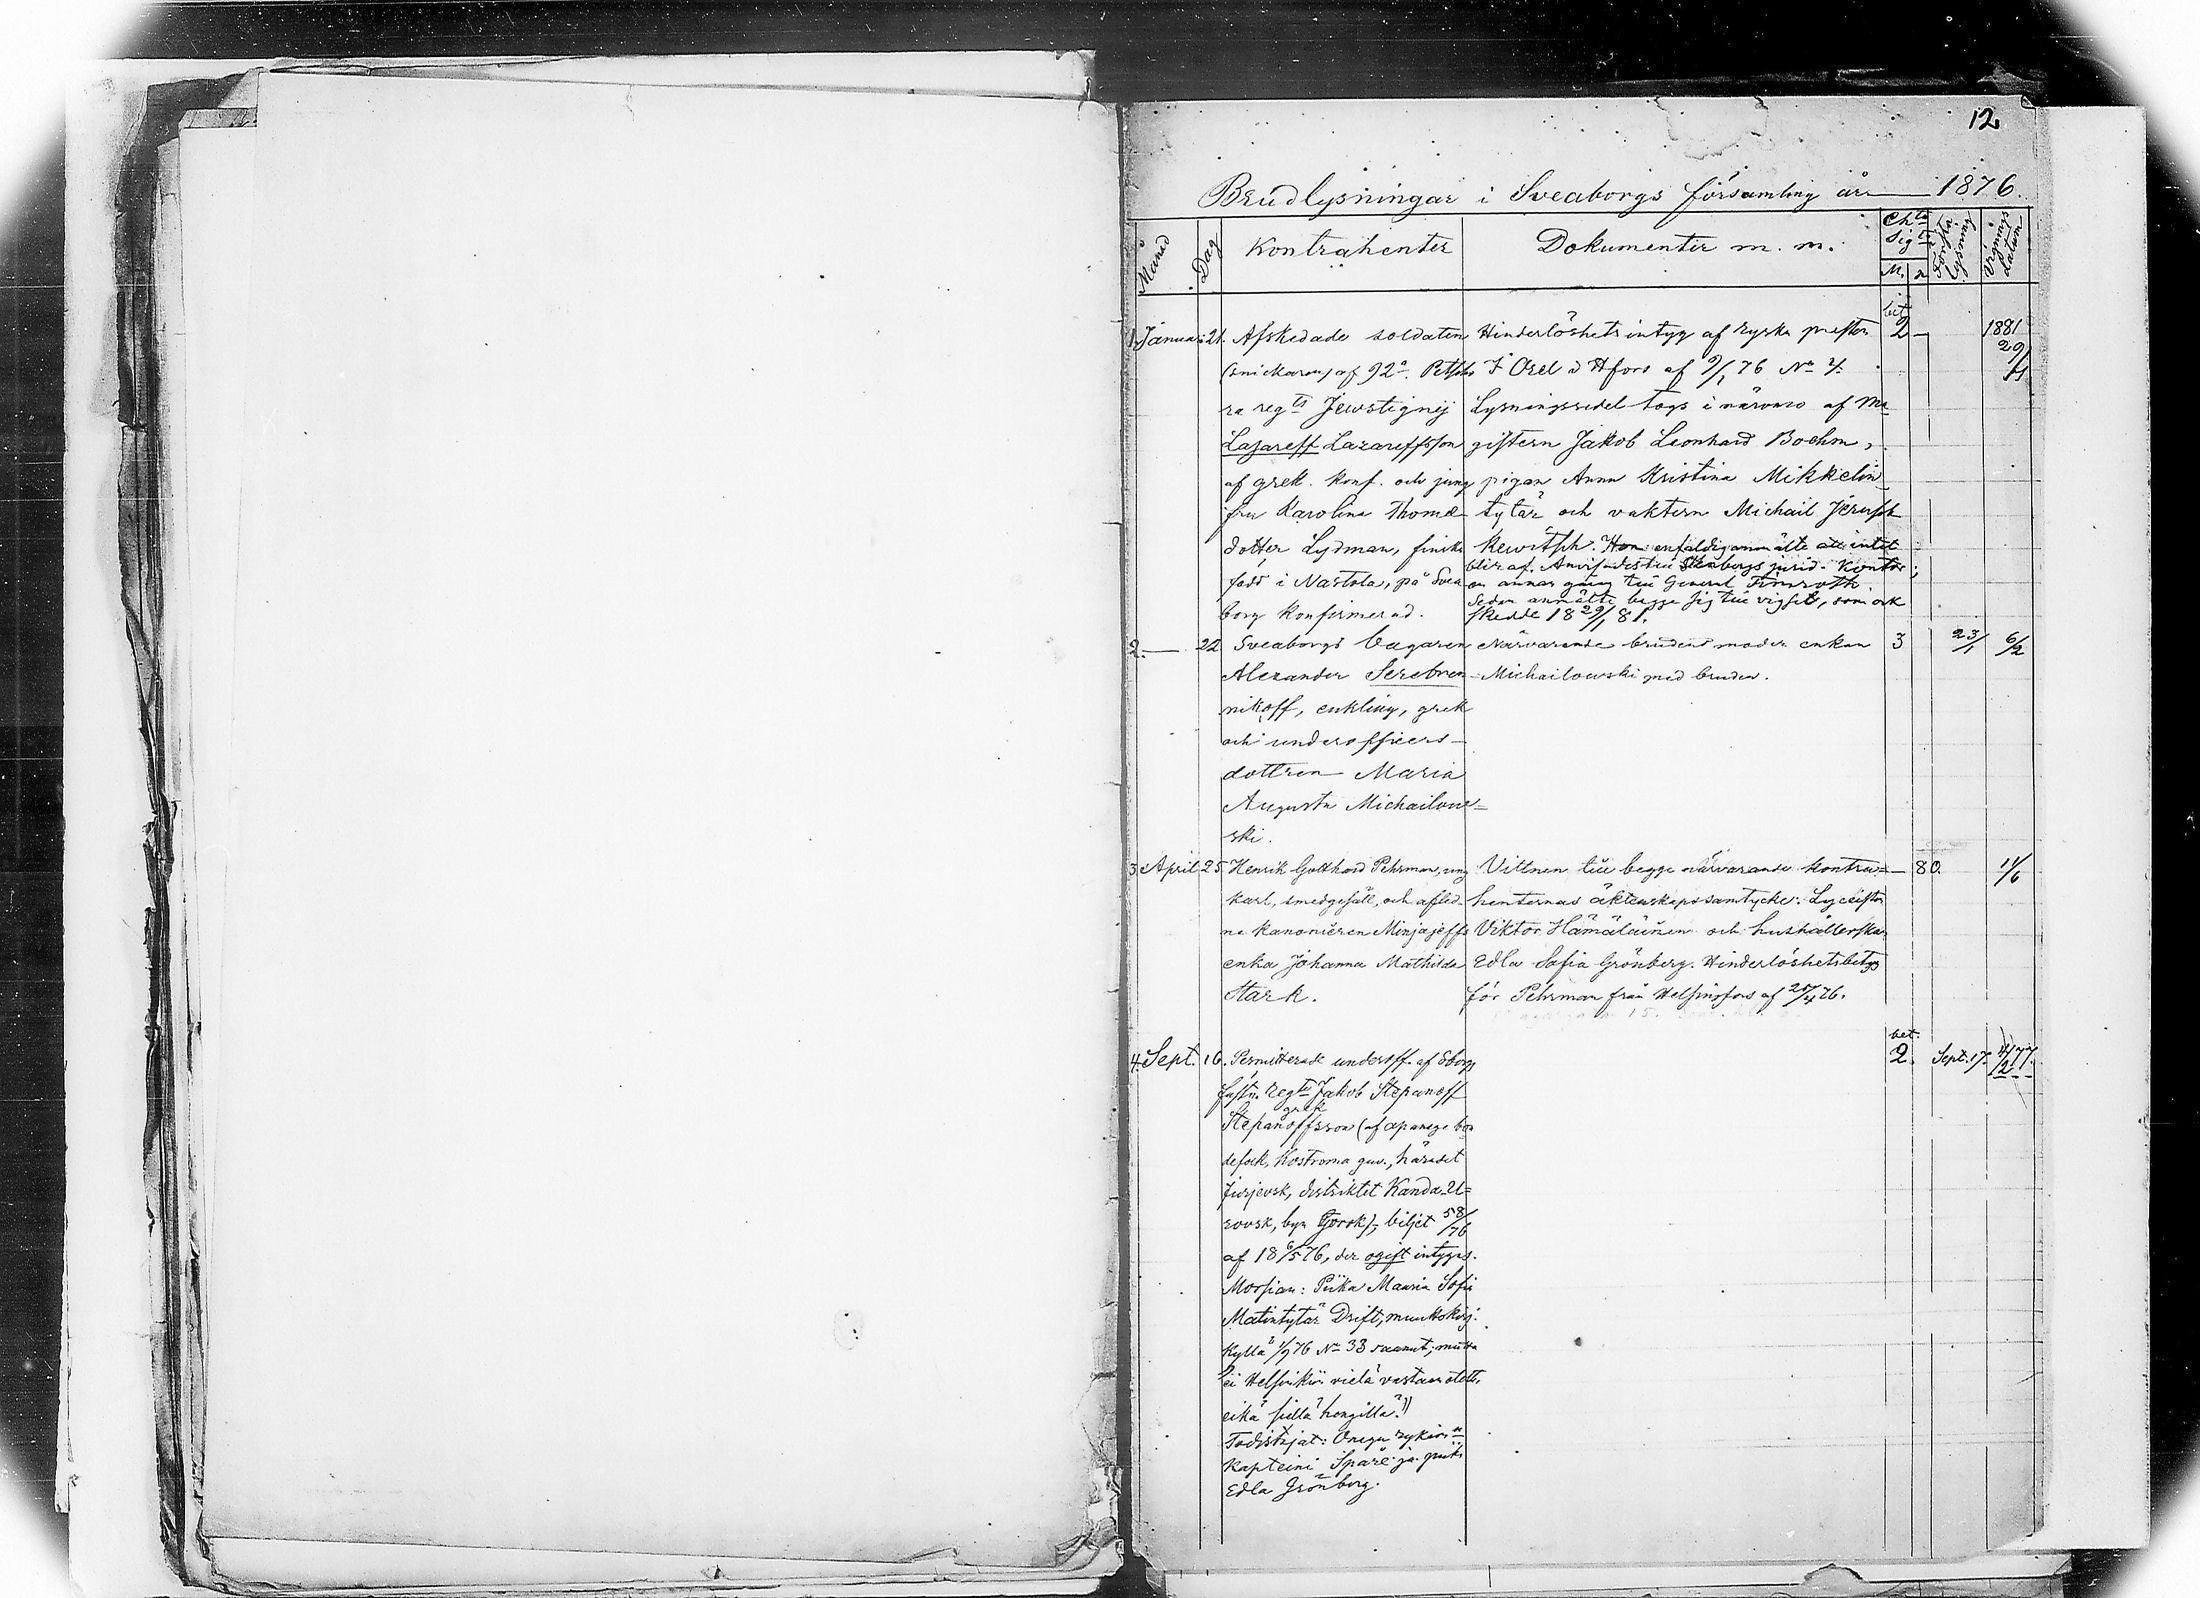 12
Brudlysningar i Sveaborgs församling år 1876.
Månad
Dag
Kontrahenter
Dokumenter m. m.
M.
Första lysning
Vignings datum
1. Januari 21.
Afskedade soldaten
(snickaren) af 92a
ra regts Jewstignej
Lasareff Lazareffsson
af grek. konf. och jung
fru Karolina Thomæ
dotter Lydman, finska
född i Nastola, på Svea
borg konfirmerad.
Hinderlöshetsintyg af ryska presten
Orel i Hfors af 9/1 76 No
Lysningssedel togs i närvaro af Ma
gistern Jakob Leonhard Boehm,
pigan Anna Kristina Mikkelin
tytär och vaktern Michail
anmälte att intet
blir af. jurid. kontor;
en annan gång till General
Sedan anmälte begge sig till vigsel, som ock
skedde 18 29/1 81.
bet
2 –
1881
29/1
2. — 22
Sveaborgs bagaren
Alexander Serebren
nikoff, enkling, grek
och underofficers-
dottren Maria
Augusta Michailow=
ski.
Närvarande brudens moder enkan
Michailowski med bruden.
3
23/1
6/2
3. April 25.
Henrik Gotthard Pehrman, ung
karl, smedgesäll, och aflid-
ne kanonieren Minjajeffs
enka Johanna Mathilda
Stark.
Vittnen till begge närvarande kontra=
henternas äktenskapssamtycke: Lyceisten
Viktor Hämäläinen och hushållerskan
Edla Sofia Grönberg. Hinderlöshetsbetyg
för Pehrman från Helsingfors af 76.
— 80.
11/6
4. Sept. 16.
Permitterade underoff. af Sborgs
fästn. regts Jakob Stepanoff
grek
Stepanoffsson (af apanage bon
defolk, Kostroma guv., häradet
Jurjevsk, distriktet Kanda-U=
rovsk, byn Gorsk), biljet 58/76
af 18 6/5 76, der ogift intygas.
Morsian: Piika Maaria Sofia
Matintytär Drift, muuttokirj.
kyllä 1/9 76 No 33 saanut, mutta
ei Helsinkiin vielä vastaan otettu,
eikä sillä hengillä.
Todistajat:
kapteini Spåre ja piika
Edla Grönberg.
bet.
2.
Sept. 17.